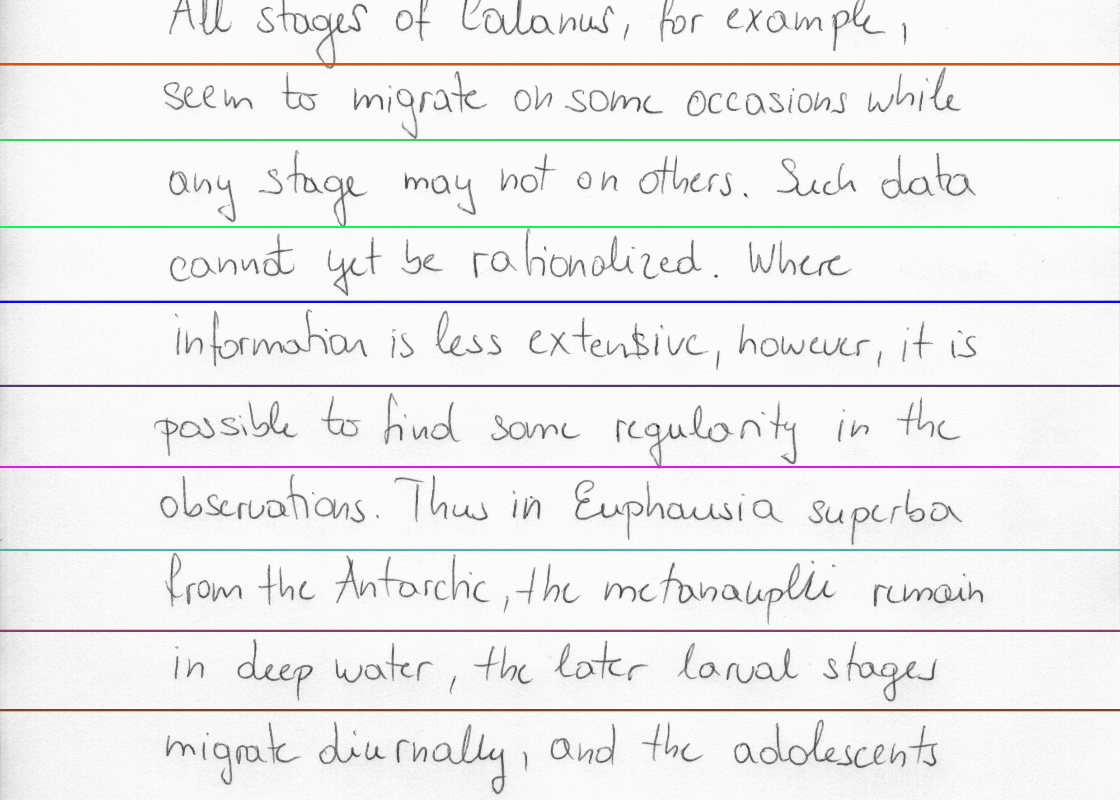 All stages of Calanus, for example,
seem to migrate on some occasions while
any stage may not on others. Such data
cannot yet be rationalized. Where
information is less extensive, however, it is
possible to find some regularity in the
observations. Thus in Euphausia superba
from the Antarctic, the metanauplii remain
in deep water, the later larval stages
migrate diurnally, and the adolescents